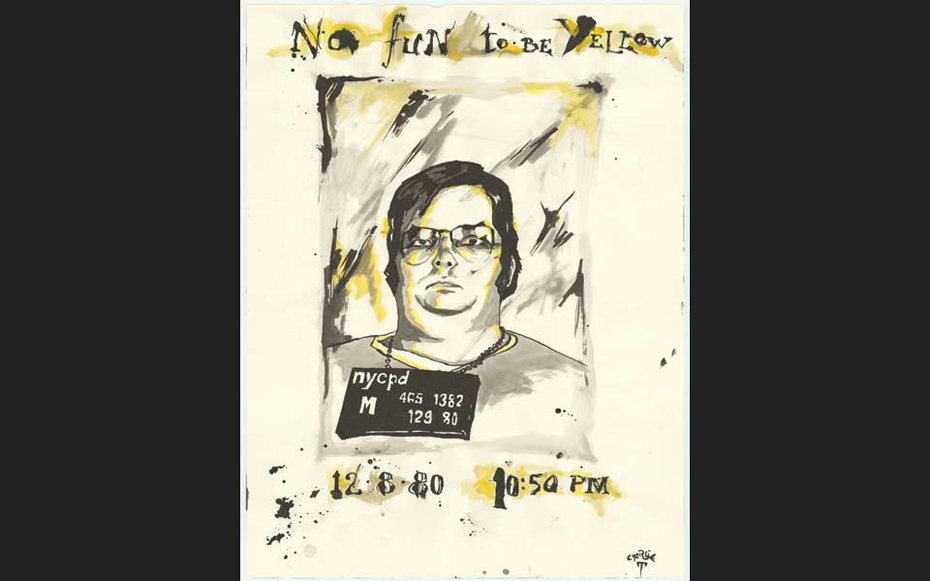 No fun to be Yellow
nycpd
M 465 1382
129 80
12·8·80 10:50 PM